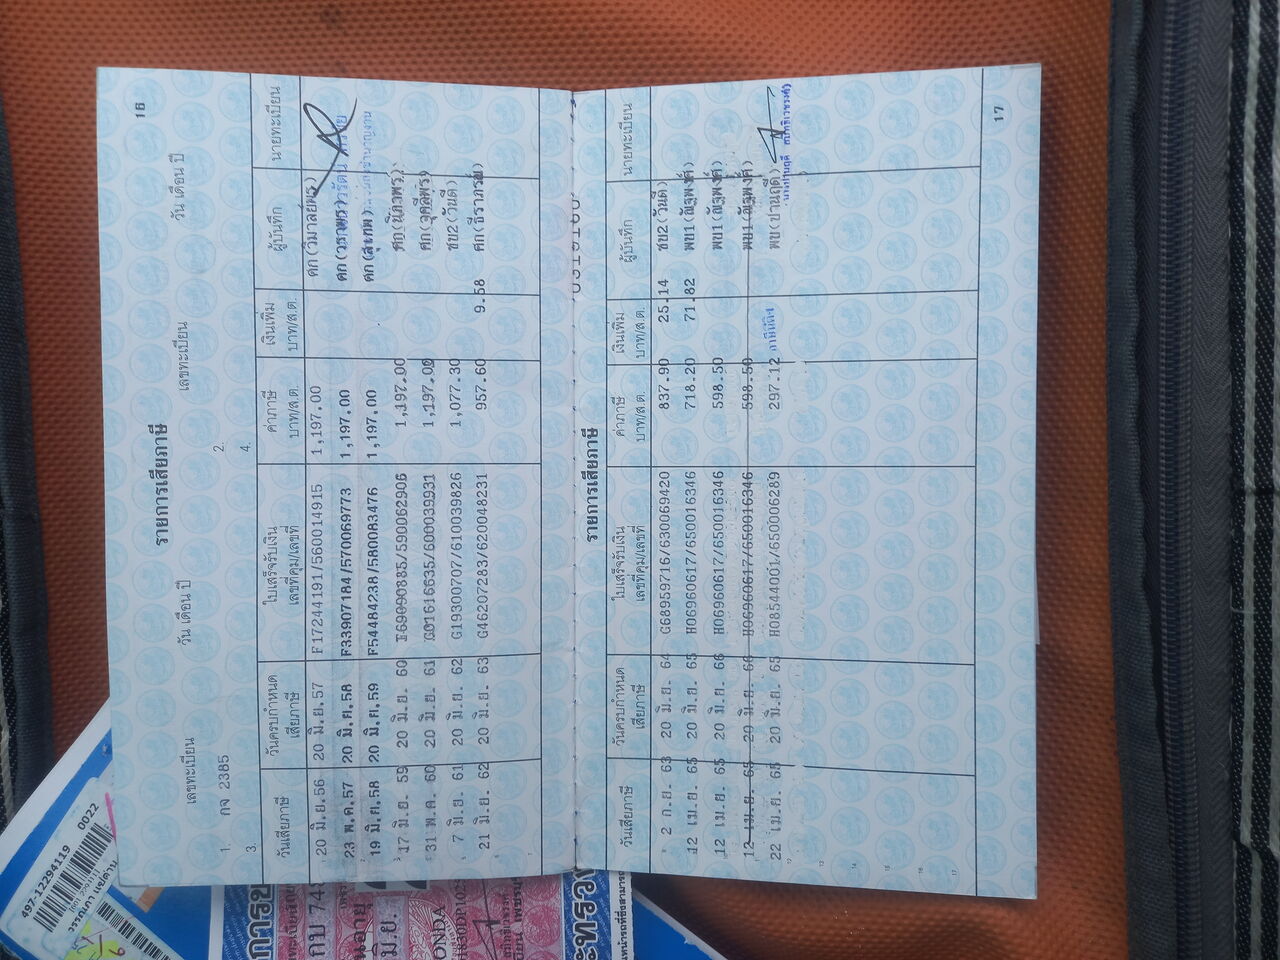 16
รายการเสียภาษี
เลขทะเบียน วัน เดือน ปี เลขทะเบียน วัน เดือน ปี
1. กจ 2385 2.
3. 4.
วันเสียภาษี วันครบกำหนดเสียภาษี ใบเสร็จรับเงิน เลขที่คุม/เลขที่ ค่าภาษี บาท/ส.ต. เงินเพิ่ม บาท/ส.ต. ผู้บันทึก นายทะเบียน
20 มิ.ย.56 20 มิ.ย.57 F17244191/560014915 1,197.00 ศก(วิมาลย์พร)
23 พ.ค.57 20 มิ.ย.58 F33907184/570069773 1,197.00 ศก(วราพร)
19 มิ.ย.58 20 มิ.ย.59 F54484238/580083476 1,197.00 ศก(สุเทพ)
17 มิ.ย. 59 20 มิ.ย. 60 1,197.00
31 พ.ค. 60 20 มิ.ย. 61 G01616635/600039931 1,197.00
7 มิ.ย. 61 20 มิ.ย. 62 G19300707/610039826 1,077.30 ชบ2(วันดี)
21 มิ.ย. 62 20 มิ.ย. 63 G46207283/620048231 957.60 9.58 ศก(ธีราภรณ์)
รายการเสียภาษี
วันเสียภาษี วันครบกำหนดเสียภาษี ใบเสร็จรับเงิน เลขที่คุม/เลขที่ ค่าภาษี บาท/ส.ต. เงินเพิ่ม บาท/ส.ต. ผู้บันทึก นายทะเบียน
2 ก.ย. 63 20 มิ.ย. 64 G68959716/630069420 837.90 25.14 ชบ2(วันดี)
12 เม.ย. 65 20 มิ.ย. 65 H06960617/650016346 718.20 71.82 พบ1(ณัฐพงค์)
12 เม.ย. 65 20 มิ.ย. 66 H06960617/650016346 598.50 พบ1(ณัฐพงค์)
12 เม.ย. 65 20 มิ.ย. 66 H06960617/650016346 598.50 พบ1(ณัฐพงค์)
22 เม.ย. 65 20 มิ.ย. 65 H08544001/650006289 297.12 พบ(ปานฤดี)
17
497-12294119 0022
วรรณภา
กบ
ONDA